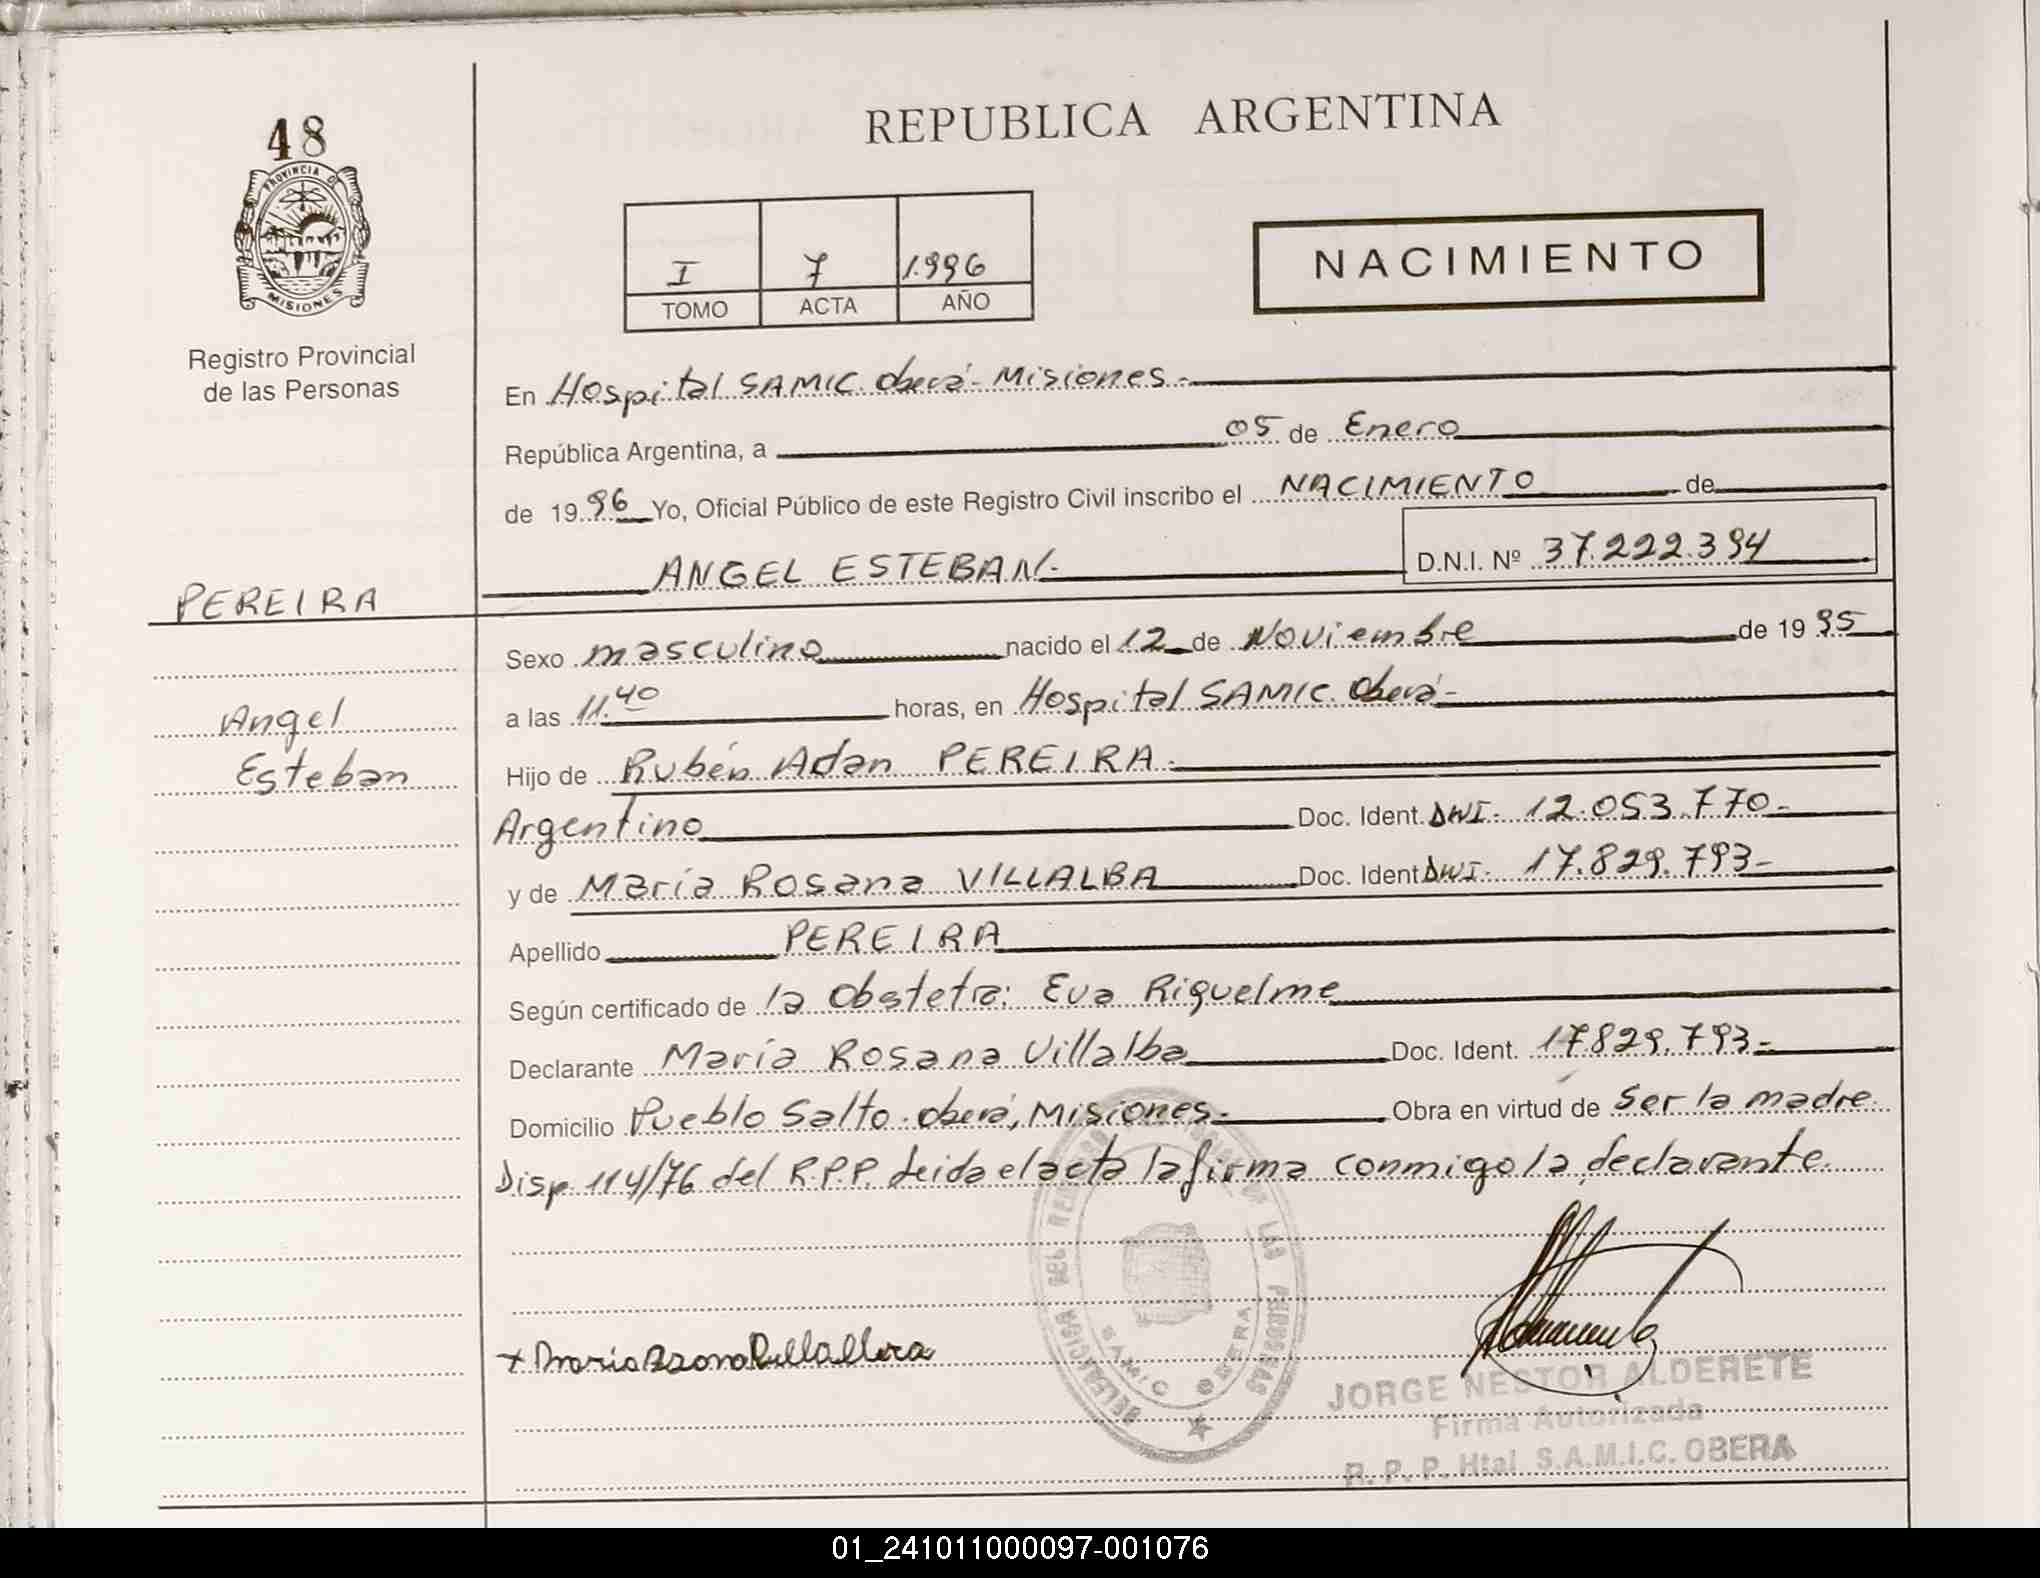 48
PROVINCIA DE
MISIONES
Registro Provincial
de las Personas
REPUBLICA ARGENTINA
I 7 1.996
TOMO ACTA AÑO
NACIMIENTO
En Hospital SAMIC. Oberá - Misiones.-
República Argentina, a 05 de Enero
de 19 96 Yo, Oficial Público de este Registro Civil inscribo el NACIMIENTO de
ANGEL ESTEBAN.- D.N.I. Nº 37.222.394
PEREIRA
Sexo masculino nacido el 12 de Noviembre de 19 95
Angel
a las 11.40 horas, en Hospital SAMIC. Oberá-
Esteban
Hijo de Rubén Adan PEREIRA.-
Argentino Doc. Ident. DNI- 12.053.770.-
y de María Rosana VILLALBA Doc. Ident DNI- 17.829.793-
Apellido PEREIRA
Según certificado de la Obstetra: Eva Riquelme
Declarante María Rosana Villalba Doc. Ident. 17829.793-
Domicilio Pueblo Salto. Oberá, Misiones.- Obra en virtud de Ser la madre.
Disp. 114/76 del R.P.P. Leida el acta la firma conmigo la declarante.
DELEGACION DEL REGISTRO DE LAS PERSONAS
SAMIC OBERA
JORGE NESTOR ALDERETE
Firma Autorizada
R. P. P. Htal. S.A.M.I.C. OBERA
01_241011000097-001076